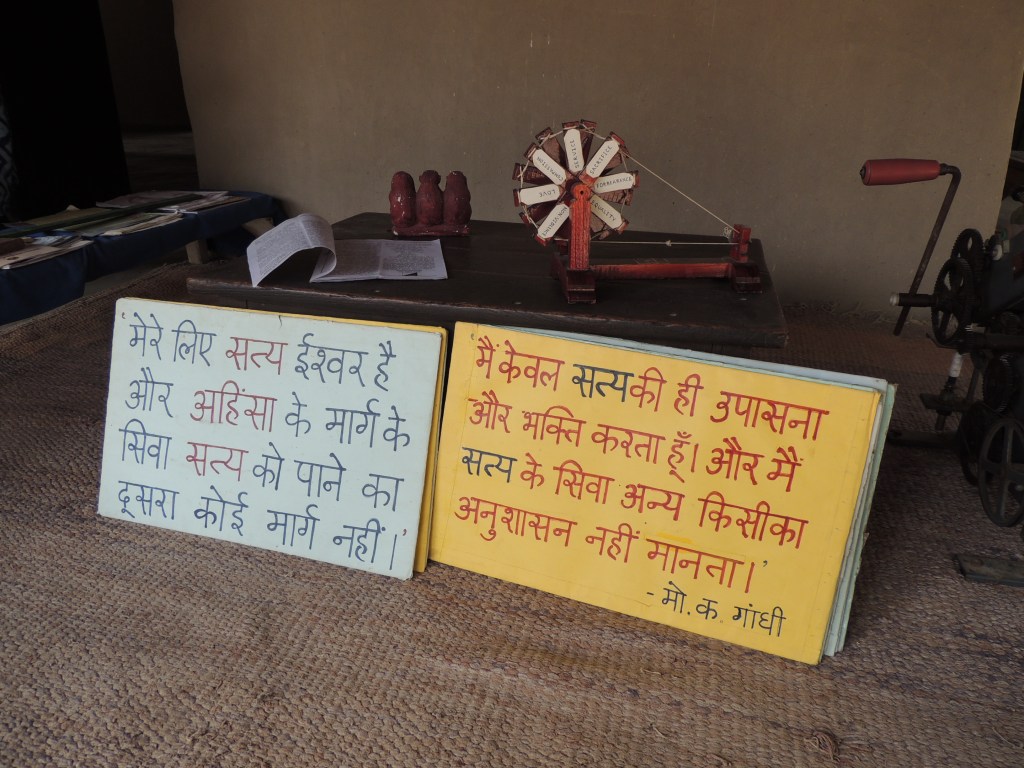 'मेरे लिए सत्य ईश्वर है
और अहिंसा के मार्ग के
सिवा सत्य को पाने का
दूसरा कोई मार्ग नहीं।'
'मैं केवल सत्य की ही उपासना
और भक्ति करता हूँ। और मैं
सत्य के सिवा अन्य किसीका
अनुशासन नहीं मानता।'
- मो. क. गांधी
SACRIFICE
FORBEARANCE
LOVE